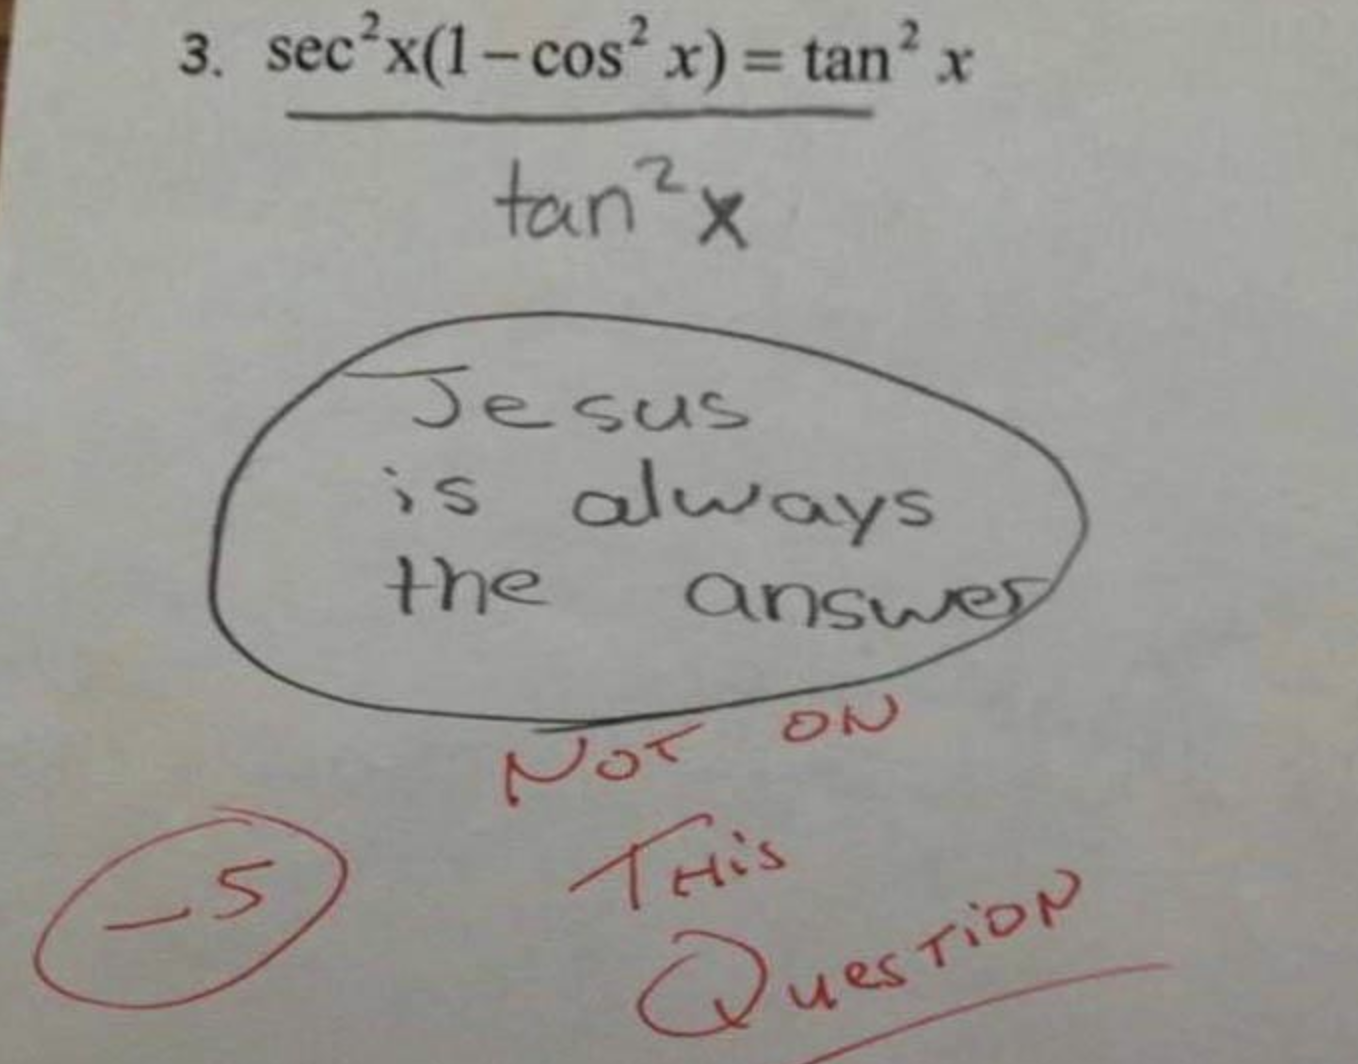 3. sec²x(1−cos² x) = tan² x
tan²x
Jesus
is always
the answer
NOT ON
THiS
QUESTiON
−5